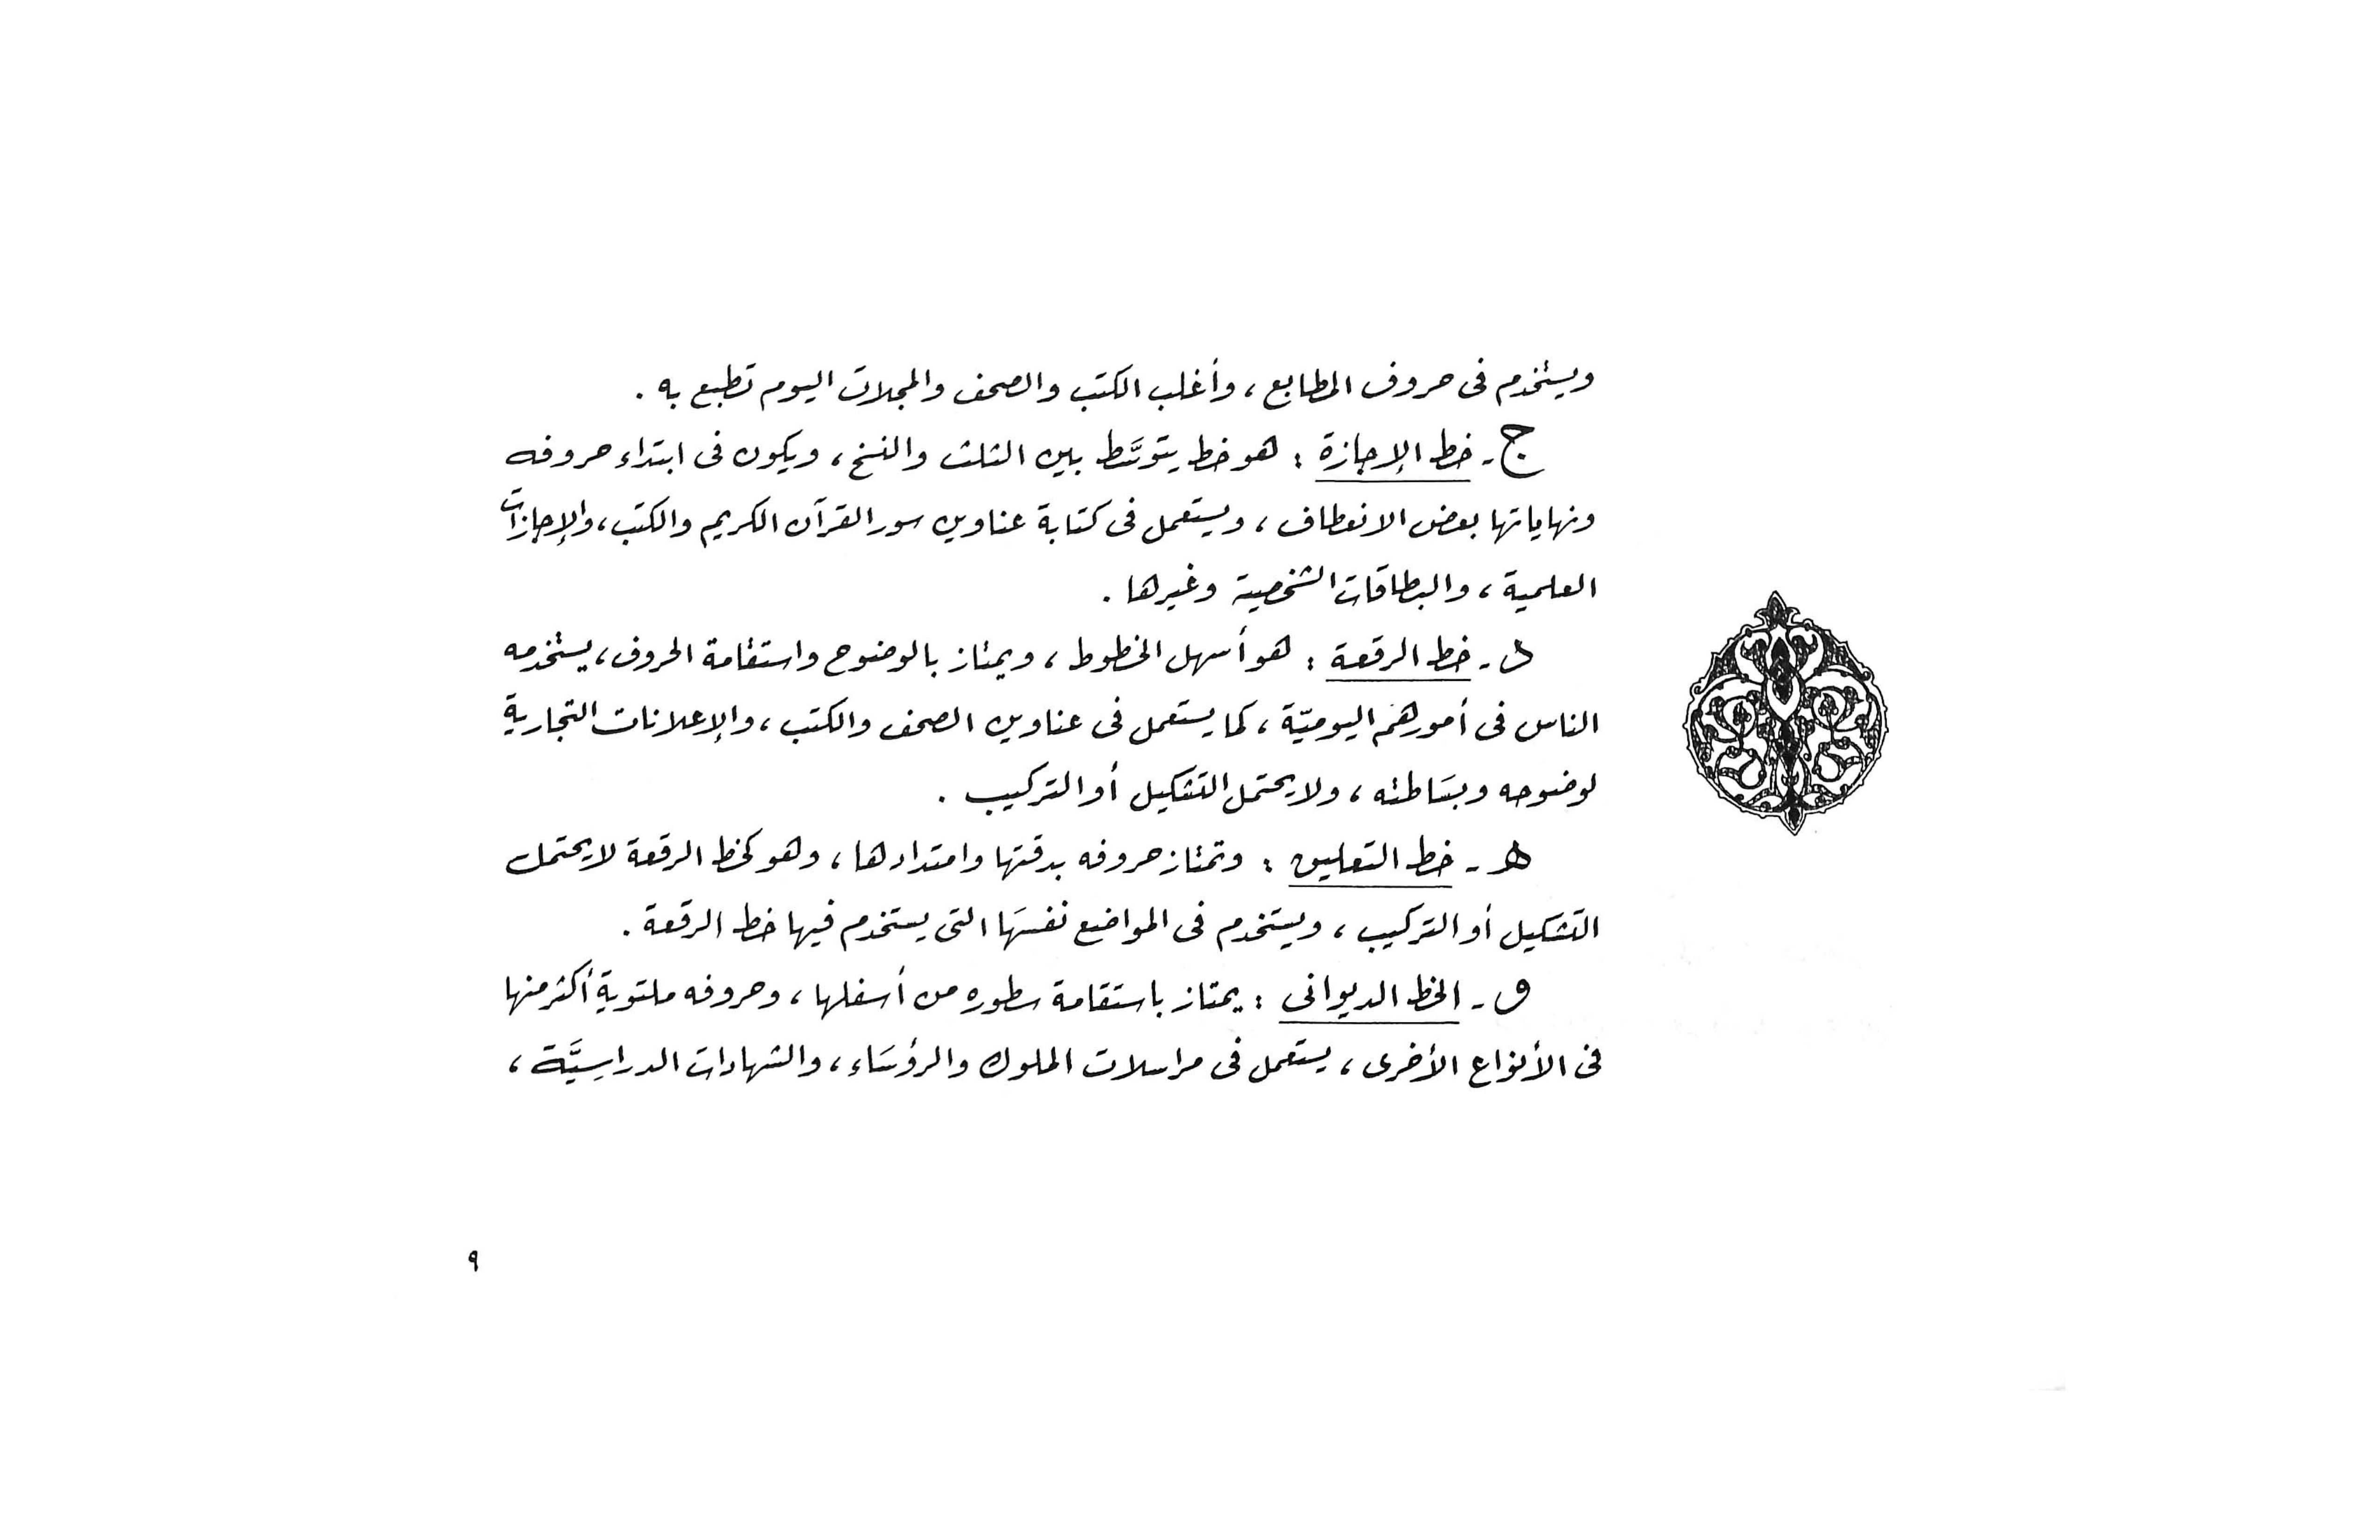 ويستخدم فى حروف المطابع ، وأغلب الكتب والصحف والمجلات اليوم تطبع به .
ج - خط الإجازة : هو خط يتوسَّط بين الثلث والنسخ ، ويكون فى ابتداء حروفه
ونهاياتها بعض الانعطاف ، ويستعمل فى كتابة عناوين سور القرآن الكريم والكتب ، والإجازات
العلمية ، والبطاقات الشخصية وغيرها .
د - خط الرقعة : هو أسهل الخطوط ، ويمتاز بالوضوح واستقامة الحروف ، يستخدمه
الناس فى أمورهم اليوميّة ، كما يستعمل فى عناوين الصحف والكتب ، والإعلانات التجارية
لوضوحه وبسَاطته ، ولا يحتمل التشكيل أو التركيب .
هـ - خط التعليق : وتمتاز حروفه بدقتها وامتدادها ، وهو كخط الرقعة لا يحتمل
التشكيل أو التركيب ، ويستخدم فى المواضع نفسَها التى يستخدم فيها خط الرقعة .
و - الخط الديوانى : يمتاز باستقامة سطوره من أسفلها ، وحروفه ملتوية أكثر منها
فى الأنواع الأخرى ، يستعمل فى مراسلات الملوك والرؤسَاء ، والشهادات الدراسِيَّة ،
٩